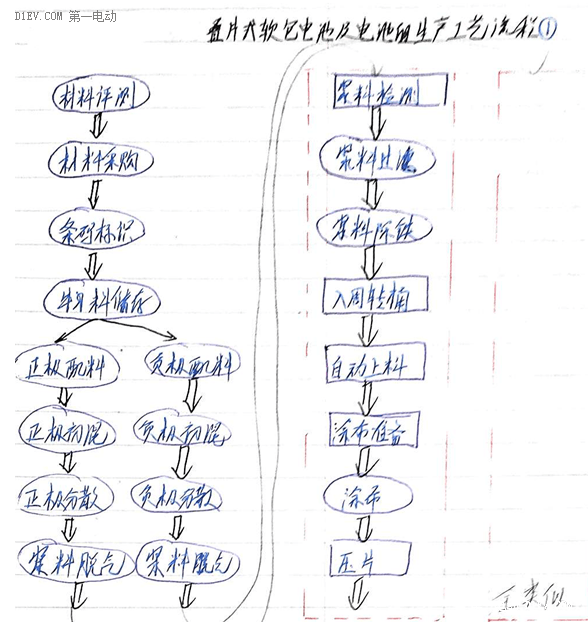 D1EV.COM 第一电动
叠片式软包电池及电池组生产工艺流程①
材料评测
材料采购
条码标识
材料储存
正极配料
正极初混
正极分散
浆料脱气
负极配料
负极初混
负极分散
浆料脱气
浆料检测
浆料过滤
浆料除铁
入周转桶
自动上料
涂布准备
涂布
压片